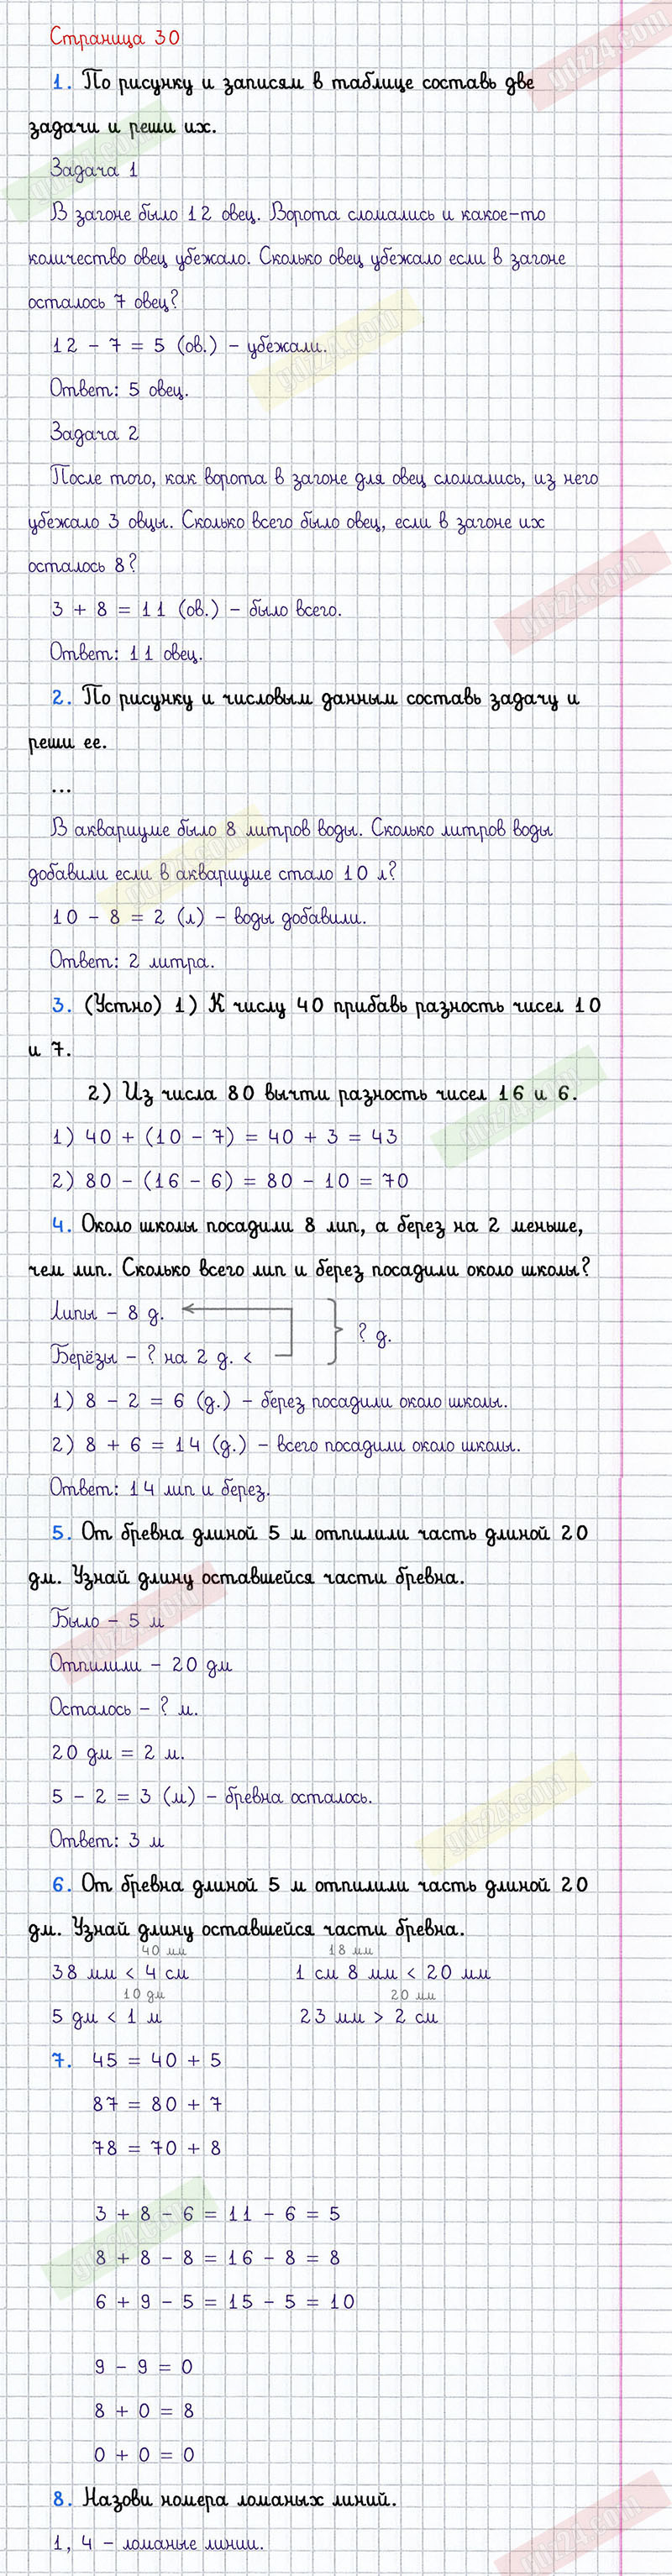 Страница 30
1. По рисунку и записям в таблице составь две
задачи и реши их.
Задача 1
В загоне было 12 овец. Ворота сломались и какое-то
количество овец убежало. Сколько овец убежало если в загоне
осталось 7 овец?
12 - 7 = 5 (ов.) - убежали.
Ответ: 5 овец.
Задача 2
После того, как ворота в загоне для овец сломались, из него
убежало 3 овцы. Сколько всего было овец, если в загоне их
осталось 8?
3 + 8 = 11 (ов.) - было всего.
Ответ: 11 овец.
2. По рисунку и числовым данным составь задачу и
реши ее.
...
В аквариуме было 8 литров воды. Сколько литров воды
добавили если в аквариуме стало 10 л?
10 - 8 = 2 (л) - воды добавили.
Ответ: 2 литра.
3. (Устно) 1) К числу 40 прибавь разность чисел 10
и 7.
2) Из числа 80 вычти разность чисел 16 и 6.
1) 40 + (10 - 7) = 40 + 3 = 43
2) 80 - (16 - 6) = 80 - 10 = 70
4. Около школы посадили 8 лип, а берез на 2 меньше,
чем лип. Сколько всего лип и берез посадили около школы?
Липы - 8 д.
? д.
Берёзы - ? на 2 д. <
1) 8 - 2 = 6 (д.) - берез посадили около школы.
2) 8 + 6 = 14 (д.) - всего посадили около школы.
Ответ: 14 лип и берез.
5. От бревна длиной 5 м отпилили часть длиной 20
дм. Узнай длину оставшейся части бревна.
Было - 5 м
Отпилили - 20 дм
Осталось - ? м.
20 дм = 2 м.
5 - 2 = 3 (м) - бревна осталось.
Ответ: 3 м
6. От бревна длиной 5 м отпилили часть длиной 20
дм. Узнай длину оставшейся части бревна.
40 мм 18 мм
38 мм < 4 см 1 см 8 мм < 20 мм
10 дм 20 мм
5 дм < 1 м 23 мм > 2 см
7. 45 = 40 + 5
87 = 80 + 7
78 = 70 + 8
3 + 8 - 6 = 11 - 6 = 5
8 + 8 - 8 = 16 - 8 = 8
6 + 9 - 5 = 15 - 5 = 10
9 - 9 = 0
8 + 0 = 8
0 + 0 = 0
8. Назови номера ломаных линий.
1, 4 - ломаные линии.
gdz24.com
gdz24.com
gdz24.com
gdz24.com
gdz24.com
gdz24.com
gdz24.com
gdz24.com
gdz24.com
gdz24.com